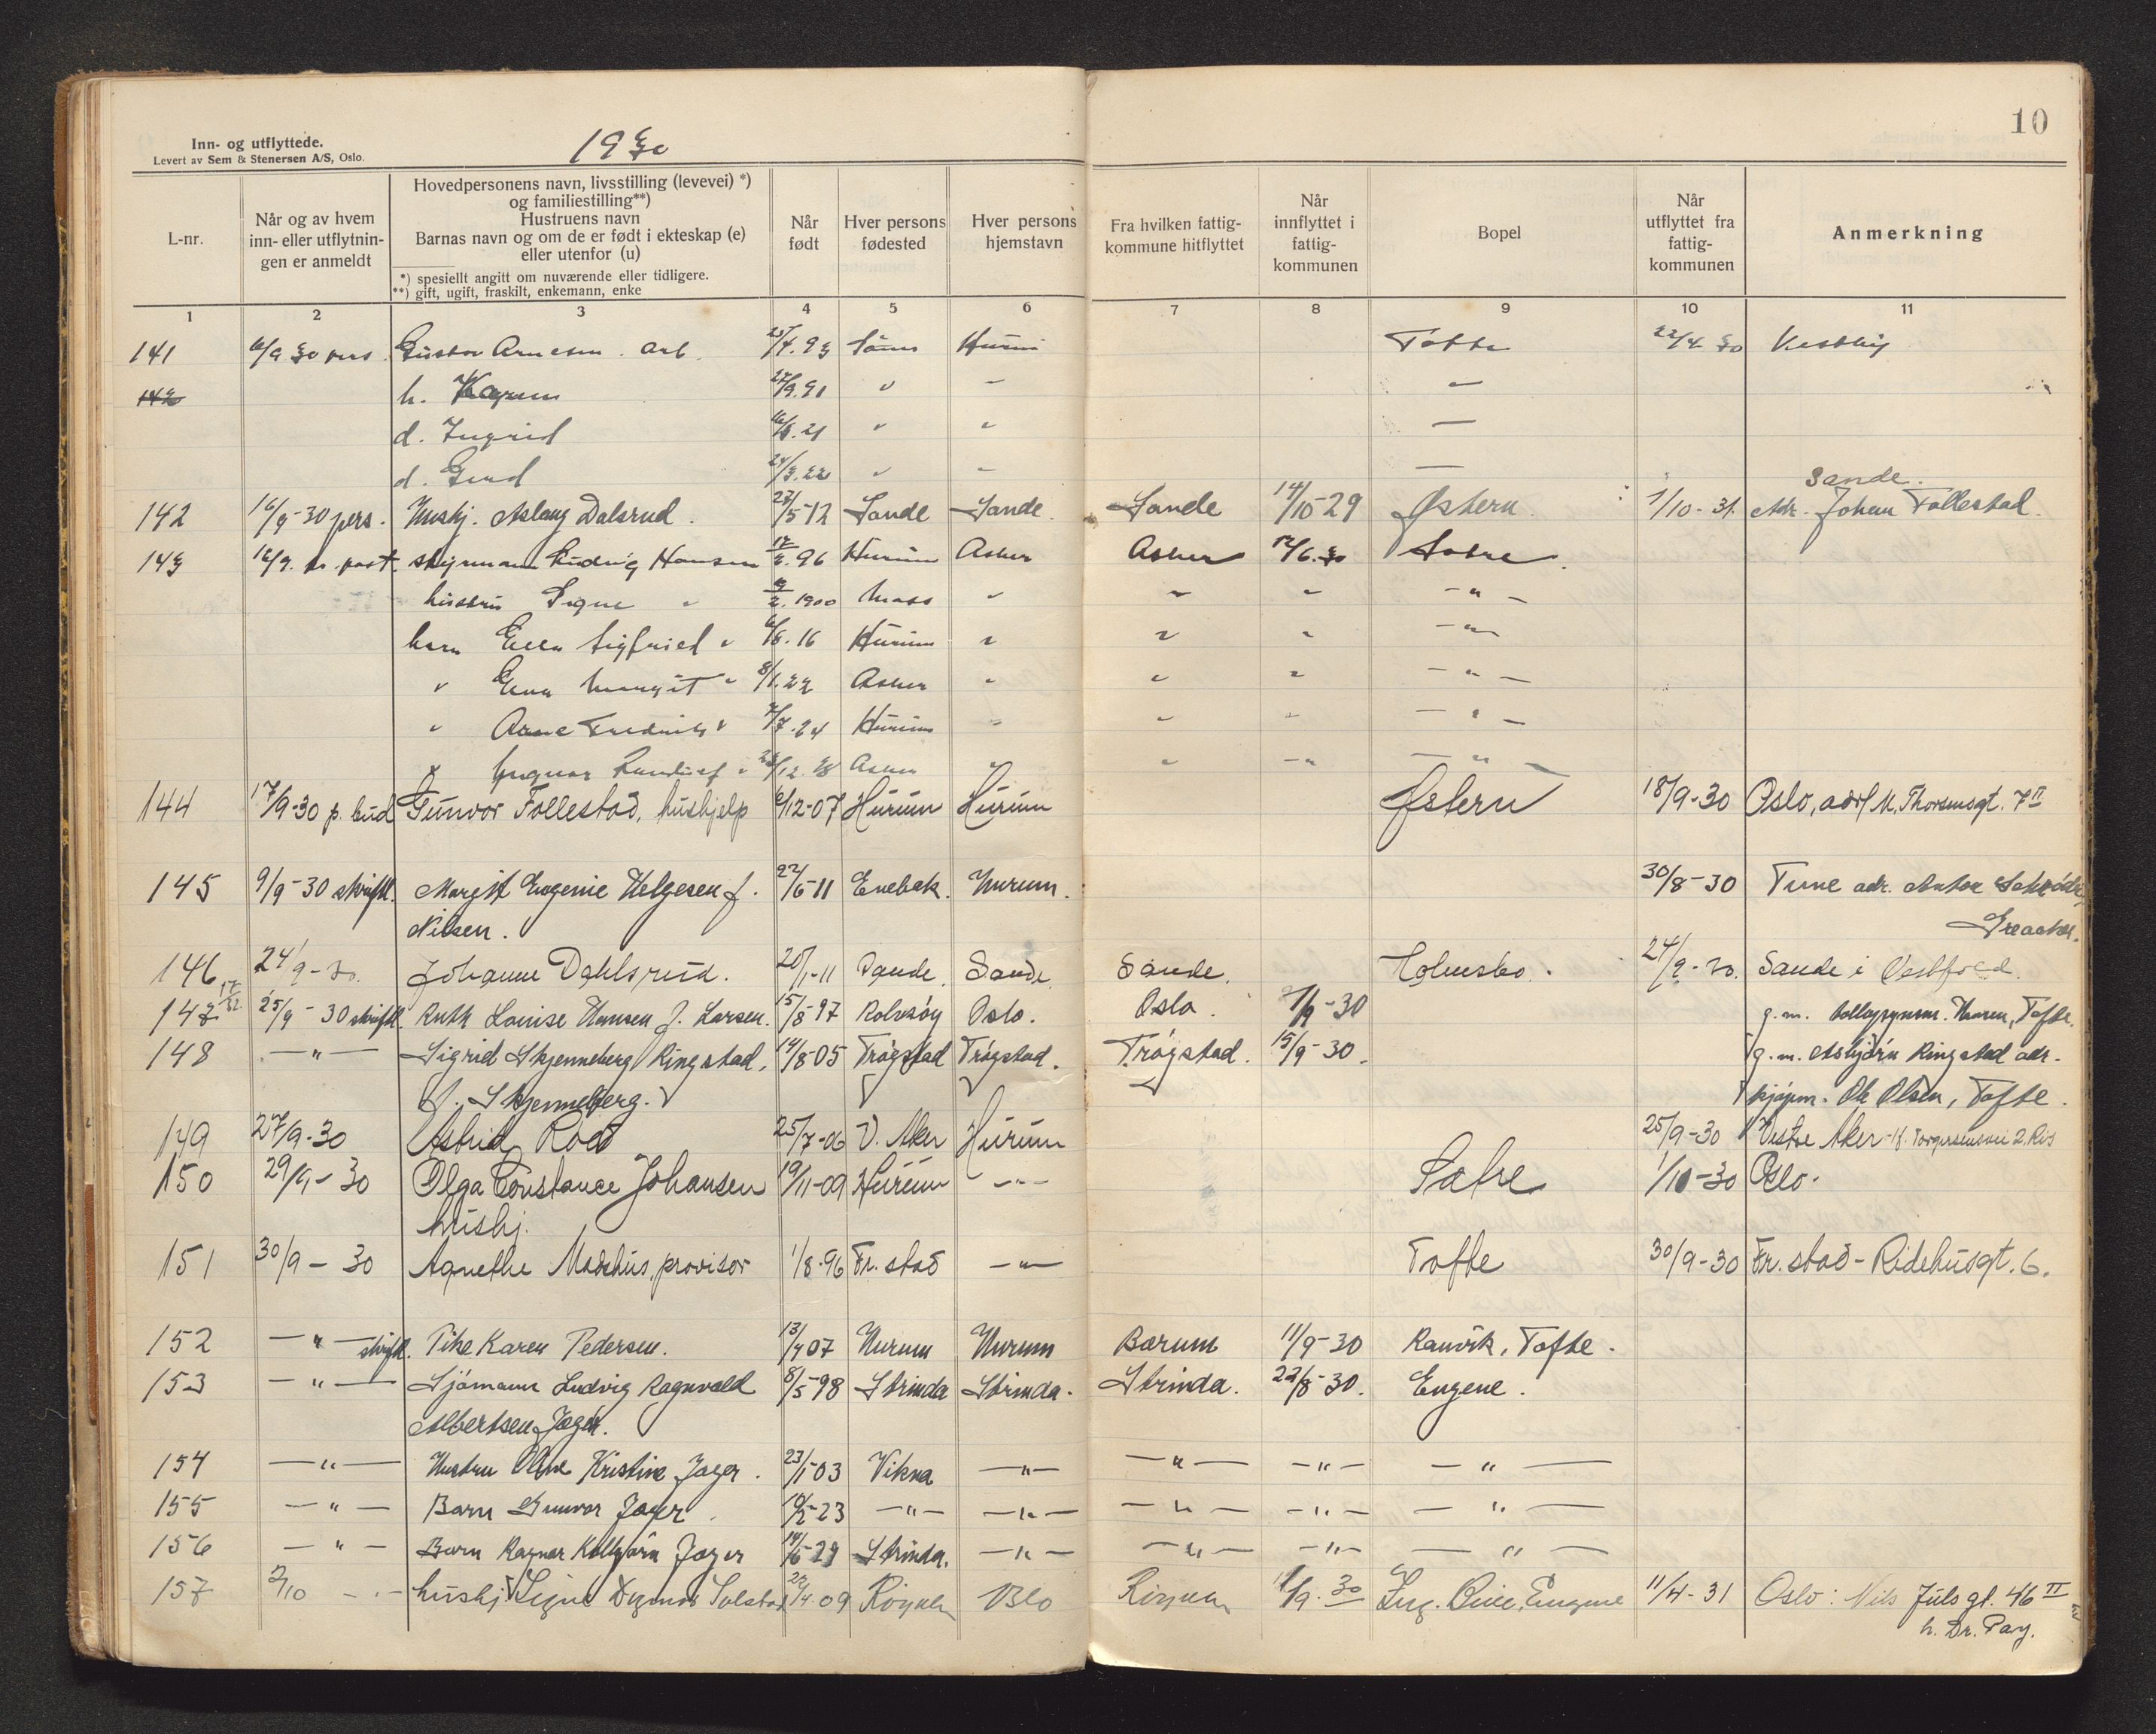 10
Inn- og utflyttede.
Levert av Sem & Stenersen A/S, Oslo.
1930
L-nr.
Når og av hvem inn- eller utflytnin-gen er anmeldt
Hovedpersonens navn, livsstilling (levevei) *)
og familiestilling**)
Hustruens navn
Barnas navn og om de er født i ekteskap (e)
eller utenfor (u)
*) spesiellt angitt om nuværende eller tidligere.
**) gift, ugift, fraskilt, enkemann, enke
Når født
Hver persons fødested
Hver persons hjemstavn
Fra hvilken fattig-kommune hitflyttet
Når innflyttet i fattig-kommunen
Bopel
Når utflyttet fra fattig-kommunen
Anmerkning
1 2 3 4 5 6 7 8 9 10 11
141 Gustav Arnesen. arb. Hurum Tofte 22/4 30 Vestby
142 h. 27/9.91 " — —
d. Ingrid " " —
d. Gerd 24/3.22 " — —
142 16/9-30 pers. Hushj. Aslaug Dalsrud. 27/5-12 Sande Sande. Sande 14/10-29 Østern. 1/10-31. Sande. Adr. Johan Follestad.
143 16/9. pr. post. styrmann Ludvig Hansen 96 Hurum Asker Asker 12/6.30 Sætre.
hustru Signe " 2. 1900 Moss " " " — " —
barn Sigfried " 6/8. 16 Hurum " " " — " —
" Margit " 8/1.22 Asker " " " — " —
" Arne Fredrik " 7/7.24 Hurum " " " — " —
" Asker " " — " — " —
144 17/9-30 p. bud Gunvor Follestad, hushjelp 6/12-07 Hurum Hurum Østern 18/9-30 Oslo, adr/ M. Thoresensgt. 7 II
145 9/9-30 skriftl. Margit Eugenie Helgesen f. 22/6-11 Enebak. Hurum. 30/8-30 Tune adr. Anton
Nilsen. Greaaker.
146 24/9-30. Johanne Dahlsrud. 20/1-11 Sande. Sande. Sande. Holmsbo. 24/9-30. Sande i Vestfold.
147 25/9-30 skriftl. Ruth Louise Hansen f. Larsen. 15/8-97 Rolvsöy Oslo. Oslo. 1/9-30 g.m. Hansen, Tofte.
148 — " — Sigrid Skjenneberg Ringstad, 14/8-05 Trögstad Trögstad. Trögstad. 15/9-30. g.m. Asbjörn Ringstad adr.
f. Skjenneberg. kjöpm. Ole Olsen, Tofte.
149 27/9-30 Astrid Roed 25/7-06 V. Aker Hurum 25/9-30 Vestre Aker - H. Torgersensvei 2. Ris
150 29/9-30 Olga Constance Johansen 19/11-09 Hurum — " — Sætre 1/10-30 Oslo.
hushj.
151 30/9-30 Agnethe Madshus, provisor 1/8-96 Fr.stad — " — Tofte 30/9-30 Fr.stad - Ridehusgt. 6.
152 — " — skriftl. Pike Karen Pedersen. 07 Hurum Hurum Bærum 11/9-30 Ramvik, Tofte.
153 — " — Sjömann Ludvig Ragnvald 8/5-98 Strinda Strinda. Strinda. 22/8-30. Engene.
Albertsen Jæger.
154 — " — Hustru Kristine Jæger. 23/1-03 Vikna — " — — " — — " — — " —
155 — " — Barn Gunvor Jæger. 23 — " — — " — — " — — " — — " —
156 — " — Barn Ragnar Kolbjörn Jæger 14/5-29 Strinda. — " — — " — — " — — " —
157 2/10 — " — hushj Signe Dagmar Solstad 22/4-09 Röyken Oslo Röyken 1/9. 30 Ing. Engene 11/4-31 Oslo: Nils Juls gt. 46 II
h. Dr.